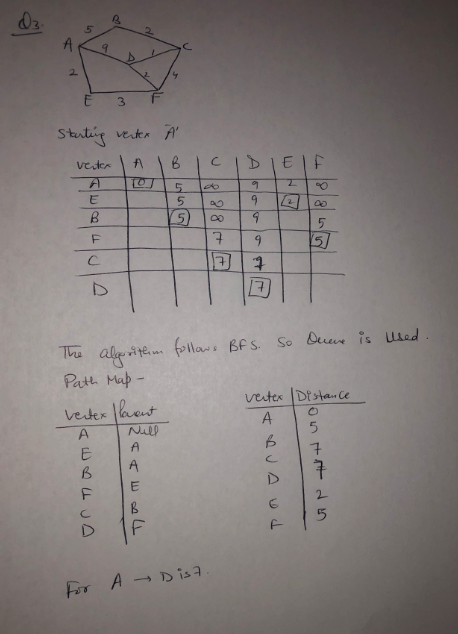 Q3.
B
5 2
A 9 1 C
D
2 2 4
E 3 F
Starting vertex 'A'
vertex A B C D E F
A 0 5 ∞ 9 2 ∞
E 5 ∞ 9 2 ∞
B 5 ∞ 9 5
F 7 9 5
C 7 7
D 7
The algorithm follows BFS. So Queue is Used.
Path Map -
vertex Parent
A Null
E A
B A
F E
C B
D F
vertex Distance
A 0
B 5
C 7
D 7
E 2
F 5
For A → D is 7.